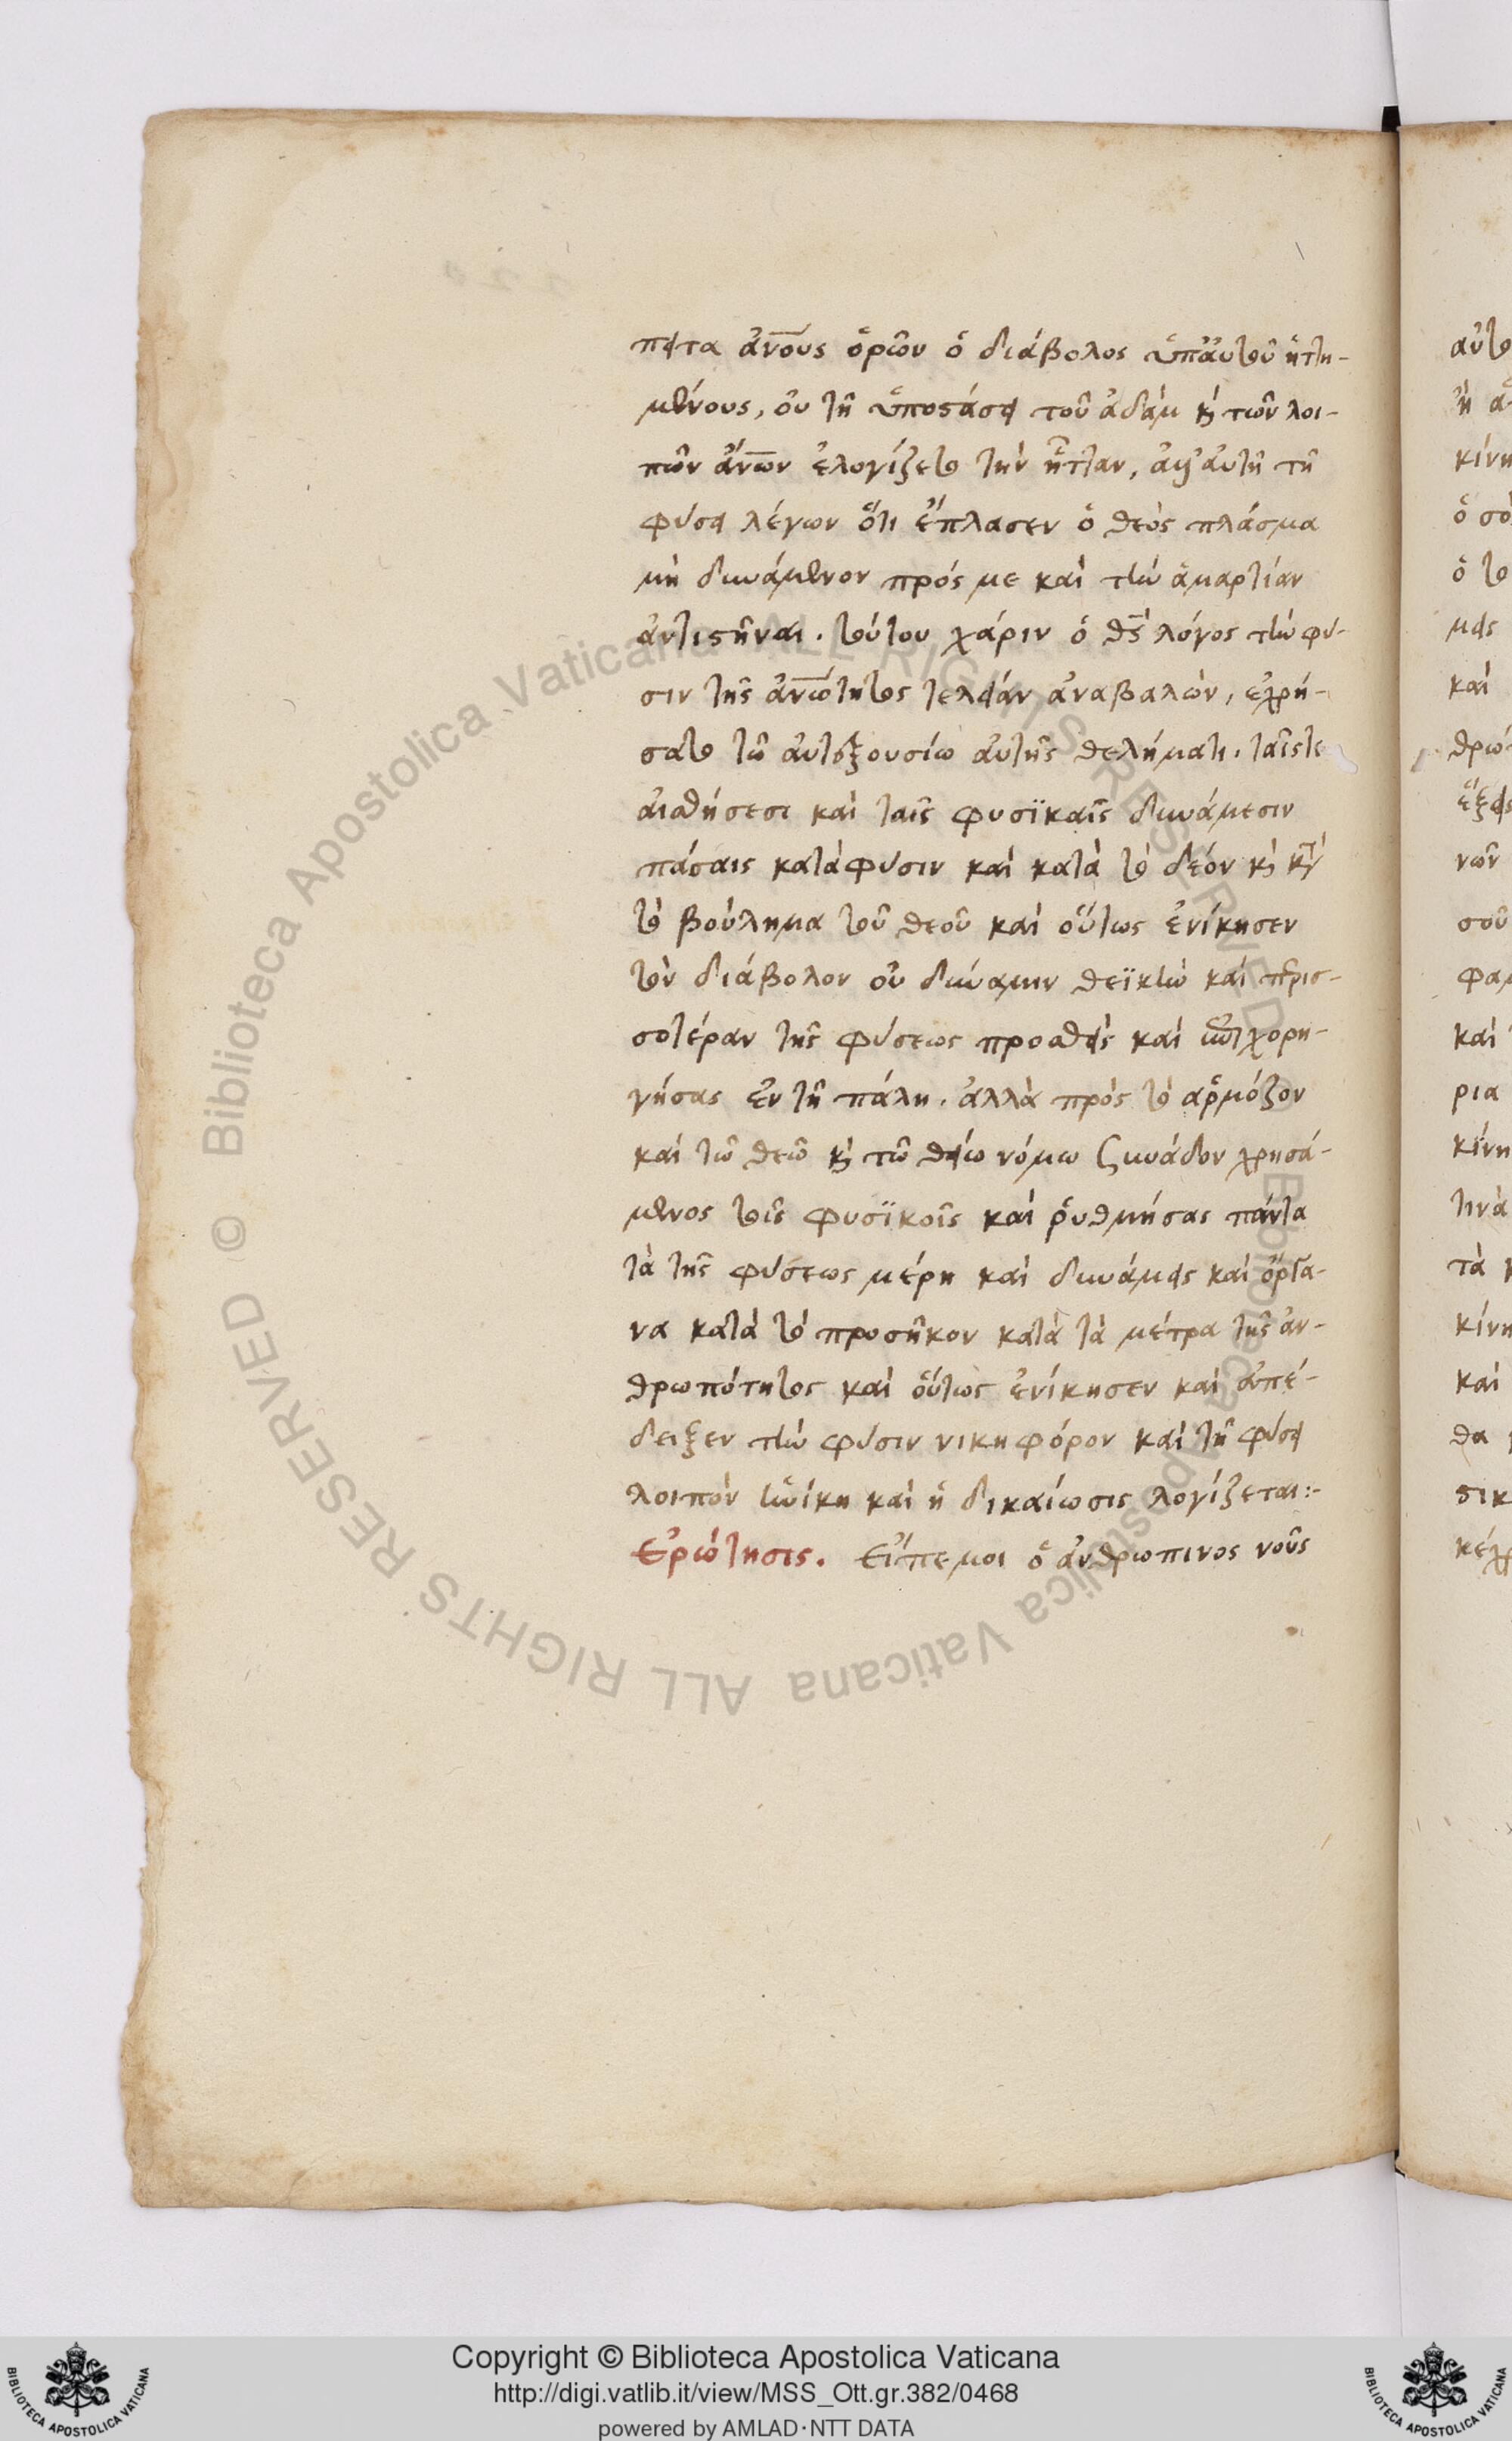 πεῖτα ἀν̅ους ὁρῶν ὁ διάβολος ὑπἀυτοῦ ἡττη-
μένους, οὐ τῆ ὑποστάσει τοῦ ἀδὰμ κὶ τῶν λοι-
πῶν ἀν̅ων ἐλογίζετο τὴν ἧτταν, ἀλλ' ἀυτῆ τῆ
φύσει λέγων ὅτι ἔπλασεν ὁ θεὸς πλάσμα
μὴ δυνάμενον πρός με καὶ τὴν ἁμαρτίαν
ἀντιστῆναι. τούτου χάριν ὁ θς̅ λόγος τὴν φύ-
σιν τῆς ἀν̅ώτητος τελείαν ἀναβαλὼν, εχρή-
σατο τῶ ἀυτεξουσίω ἀυτῆς θελήματι. ταῖς τε
ἀισθήσεσι καὶ ταῖς φυσϊκαῖς δυνάμεσιν
πάσαις κατὰ φύσιν καὶ κατὰ τὸ δέον κὶ κτ̀
τὸ βούλημα τοῦ θεοῦ καὶ οὕτως ἐνίκησεν
τὸν διάβολον οὐ δύναμιν θεϊκὴν καὶ περισ-
σοτέραν τῆς φύσεως προσθεὶς καὶ χορη-
γήσας ἐν τῆ πάλη. ἀλλὰ πρὸς τὸ ἁρμόζον
καὶ τῶ θεῶ κὶ τῶ θείω νόμω συνάδον χρησά-
μενος τοῖς φυσϊκοῖς καὶ ῥυθμήσας πάντα
τὰ τῆς φύσεως μέρη καὶ δυνάμεις καὶ ὄργα-
να κατὰ τὸ προσῆκον κατὰ τὰ μέτρα τῆς ἀν-
θρωπότητος καὶ οὕτως ἐνίκησεν καὶ ἀπέ-
δειξεν τὴν φύσιν νικηφόρον καὶ τῆ φύσει
λοιπὸν ἡ νίκη καὶ ἡ δικαίωσις λογίζεται:-
Ερώτησις. Εἰπέ μοι ὁ ἀνθρωπινος νοῦς
αὐτο
κίνη
ὁ το
μεις
καὶ
θρώ
ἕξεις
νῶν
σοῦ
φαμ
καὶ
ρια
κίνη
τινὰ
τὰ
κίνη
καὶ
θα
στικ
κέχρ
Copyright © Biblioteca Apostolica Vaticana
http://digi.vatlib.it/view/MSS_Ott.gr.382/0468
powered by AMLAD·NTT DATA
BIBLIOTECA APOSTOLICA VATICANA
BIBLIOTECA APOSTOLICA VATICANA
© Biblioteca Apostolica Vaticana ALL RIGHTS RESERVED
© Biblioteca Apostolica Vaticana ALL RIGHTS RESERVED